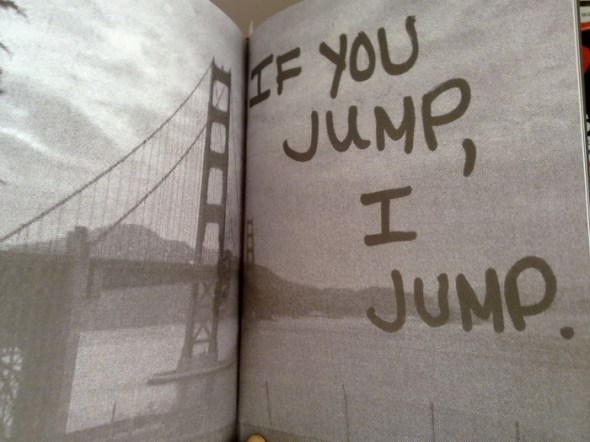 IF YOU
JUMP,
I
JUMP.